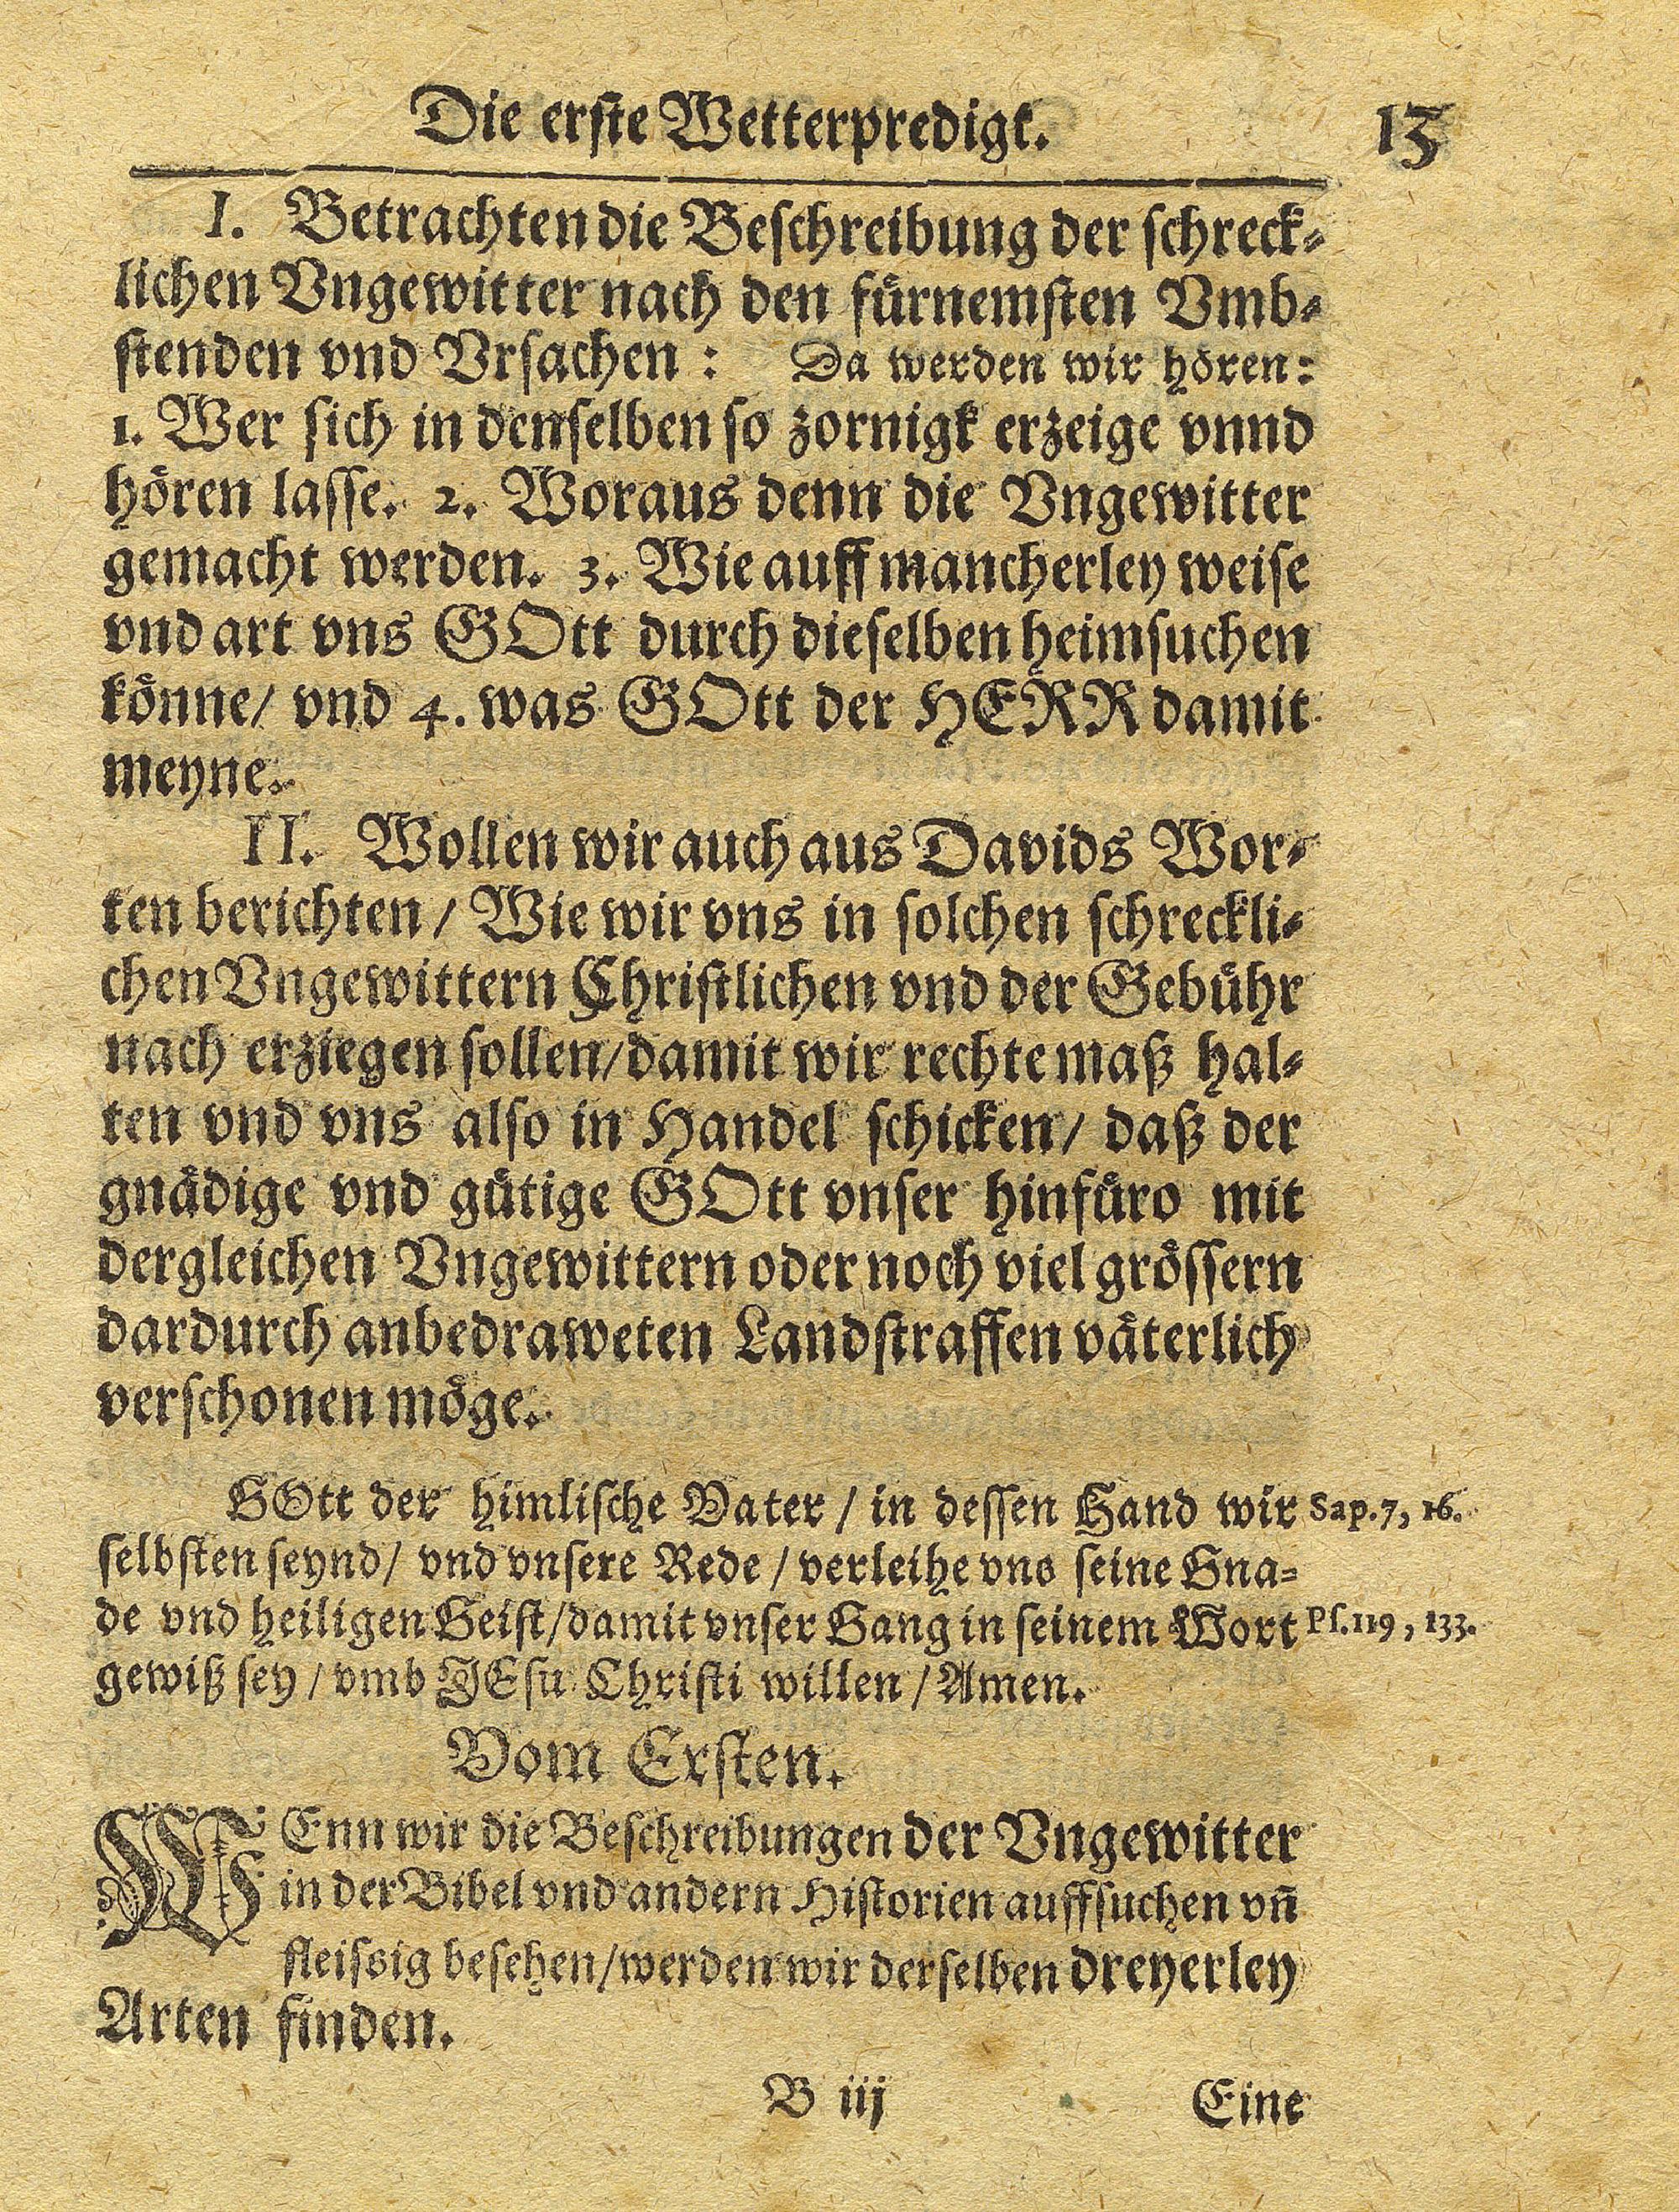 Die erste Wetterpredigt. 13
I. Betrachten die Beschreibung der schreck-
lichen Vngewitter nach den fürnemsten Vmb-
stenden vnd Vrsachen: Da werden wir hören:
1. Wer sich in denselben so zornigk erzeige vnnd
hören lasse. 2. Woraus denn die Vngewitter
gemacht werden. 3. Wie auff mancherley weise
vnd art vns GOtt durch dieselben heimsuchen
könne/ vnd 4. was GOtt der HERR damit
meyne.
II. Wollen wir auch aus Davids Wor-
ten berichten / Wie wir vns in solchen schreckli-
chen Vngewittern Christlichen vnd der Gebühr
nach erziegen sollen/damit wir rechte maß hal-
ten vnd vns also in Handel schicken/ daß der
gnädige vnd gütige GOtt vnser hinfüro mit
dergleichen Vngewittern oder noch viel grössern
dardurch anbedraweten Landstraffen väterlich
verschonen möge.
GOtt der himlische Vater / in dessen Hand wir Sap. 7, 16.
selbsten seynd/ vnd vnsere Rede / verleihe vns seine Gna-
de vnd heiligen Geist/damit vnser Gang in seinem Wort Ps. 119, 133.
gewiß sey / vmb JEsu Christi willen / Amen.
Vom Ersten.
WEnn wir die Beschreibungen der Vngewitter
in der Bibel vnd andern Historien auffsuchen vn̄
fleissig besehen/werden wir derselben dreyerley
Arten finden.
B iij Eine